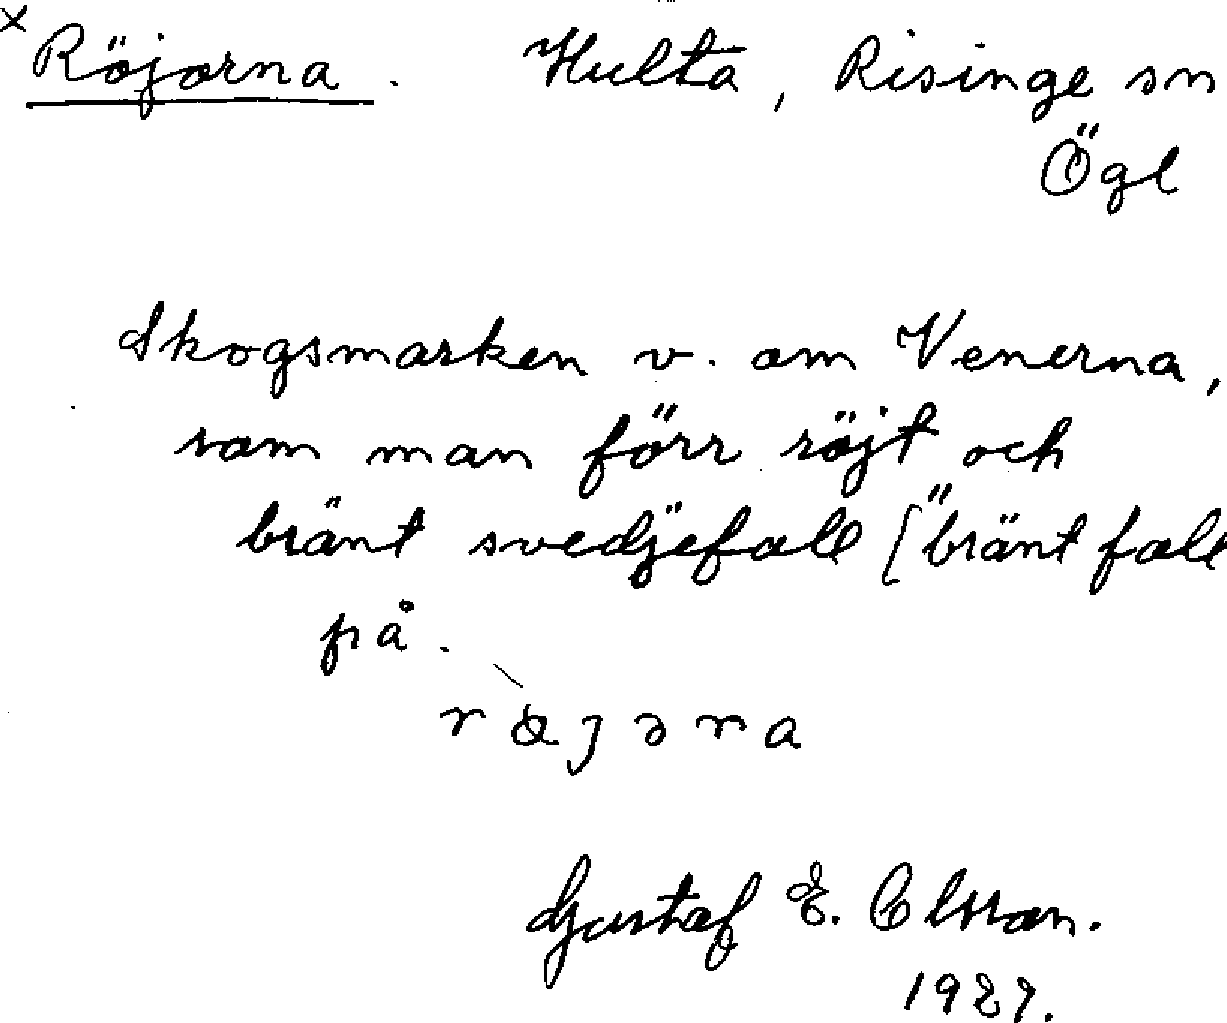 × Röjorna. Hulta, Risinge sn
Ögl
Skogsmarken v. om Venerna,
som man förr röjt och
bränt svedjefall [“bränt fall
på.
Gustaf E. Olsson.
1927.